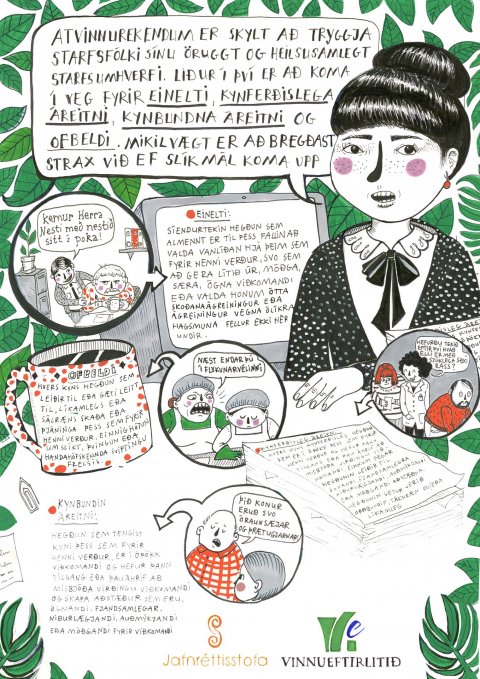 ATVINNUREKENDUM ER SKYLT AÐ TRYGGJA
STARFSFÓLKI SÍNU ÖRUGGT OG HEILSUSAMLEGT
STARFSUMHVERFI. LIÐUR Í ÞVÍ ER AÐ KOMA
Í VEG FYRIR EINELTI, KYNFERÐISLEGA
ÁREITNI, KYNBUNDNA ÁREITNI OG
OFBELDI. MIKILVÆGT ER AÐ BREGÐAST
STRAX VIÐ EF SLÍK MÁL KOMA UPP
Kemur Herra
Nesti með nestið
sitt í poka!
EINELTI:
SÍENDURTEKIN HEGÐUN SEM
ALMENNT ER TIL ÞESS FALLIN AÐ
VALDA VANLÍÐAN HJÁ ÞEIM SEM
FYRIR HENNI VERÐUR, SVO SEM
AÐ GERA LÍTIÐ ÚR, MÓÐGA,
SÆRA, ÓGNA VIÐKOMANDI
EÐA VALDA HONUM ÓTTA
SKOÐANAÁGREININGUR EÐA
ÁGREININGUR VEGNA ÓLÍKRA
HAGSMUNA FELLUR EKKI HÉR
UNDIR.
OFBELDI
HVERS KYNS HEGÐUN SEM
LEIÐIR TIL EÐA GÆTI LEITT
TIL, LÍKAMLEGS EÐA
SÁLRÆNS SKAÐA EÐA
ÞJÁNINGA ÞESS SEM FYRIR
HENNI VERÐUR. EINNIG HÓTUN
UM SLÍKT, ÞVINGUN EÐA
HANDAHÓFSKENNDA SVIPTINGU
FRELSIS.
NÆST ENDAR ÞÚ
Í FLÖKUNARVÉLINNI!
HEFURÐU TEKIÐ
EFTIR ÞVÍ HVAÐ
ELLI ER MEÐ
RASS?
KYNBUNDIN
ÁREITNI:
HEGÐUN SEM TENGIST
KYNI ÞESS SEM FYRIR
HENNI VERÐUR, ER Í ÓÞÖKK
VIÐKOMANDI OG HEFUR ÞANN
TILGANG EÐA ÞAU ÁHRIF AÐ
MISBJÓÐA VIRÐINGU VIÐKOMANDI
OG SKAPA AÐSTÆÐUR SEM ERU
ÓGNANDI, FJANDSAMLEGAR,
NIÐURLÆGJANDI, AUÐMÝKJANDI
EÐA MÓÐGANDI FYRIR VIÐKOMANDI
ÞIÐ KONUR
ERUÐ SVO
ÓRAUNSÆJAR
OG ÞRÆTUGJARNAR!
Jafnréttisstofa
VINNUEFTIRLITIÐ